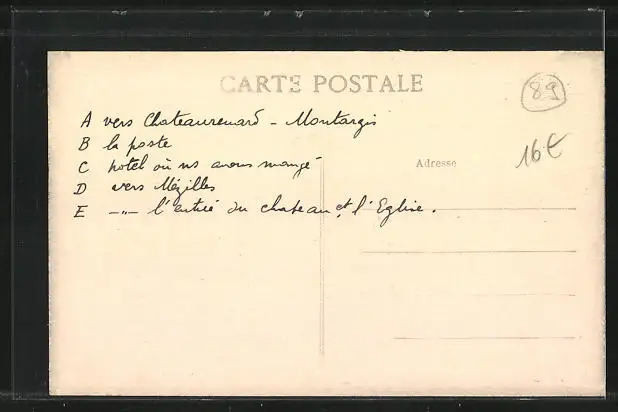 CARTE POSTALE
89
A vers Chateaurenard - Montargis
B la poste
C hotel où ns avons mangé
Adresse
16€
D vers Mézilles
E -"- l'entrée du chateau et l'Eglise.